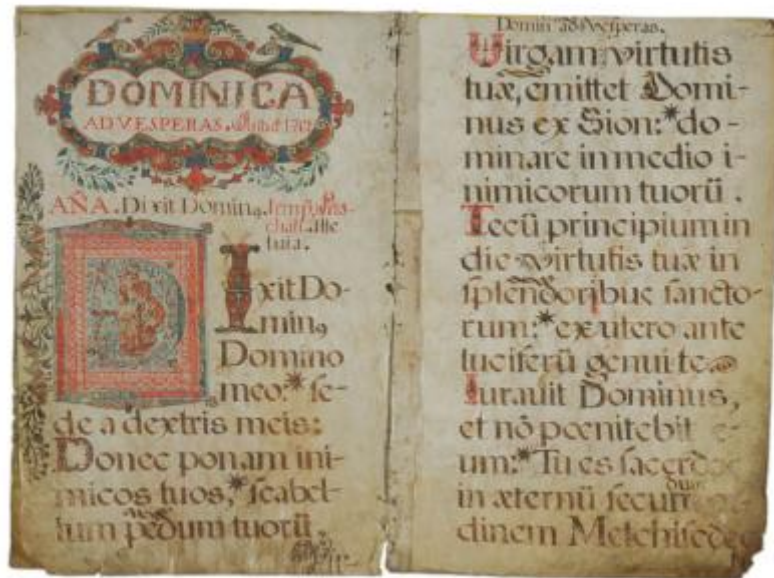 DOMINICA
AD VESPERAS.
AÑA. Dixit Dominꝯ. Temp. Pas-
chali. Alle
luia.
Dixit Do-
minꝯ
Domino
meo:* se-
de a dextris meis:
Donec ponam ini-
micos tuos,* scabel-
lum pedum tuorū.
Domin. ad Vesperas.
Virgam virtutis
tuæ, emittet Domi-
nus ex Sion:* do-
minare in medio i-
nimicorum tuorū.
Tecū principium in
die virtutis tuæ in
splendoribus sancto-
rum:* ex utero ante
luciferū genui te.
Iurauit Dominus,
et nō pœnitebit e-
um:* Tu es sacerdos
in æternū secun
dinem Melchisedec